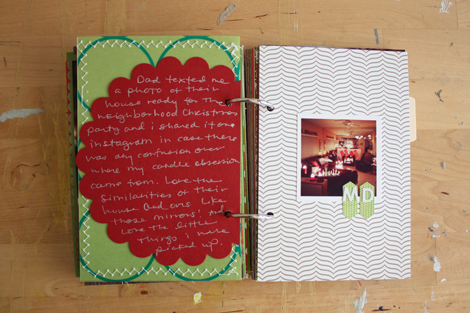 Dad texted me
a photo of their
house ready for the
neighborhood Christmas
party and i shared it on
instagram in case there
was any confusion over
where my candle obsession
came from. Love the
similarities of their
house and ours. Like
those mirrors! And
love the little
things i have
picked up.
MD